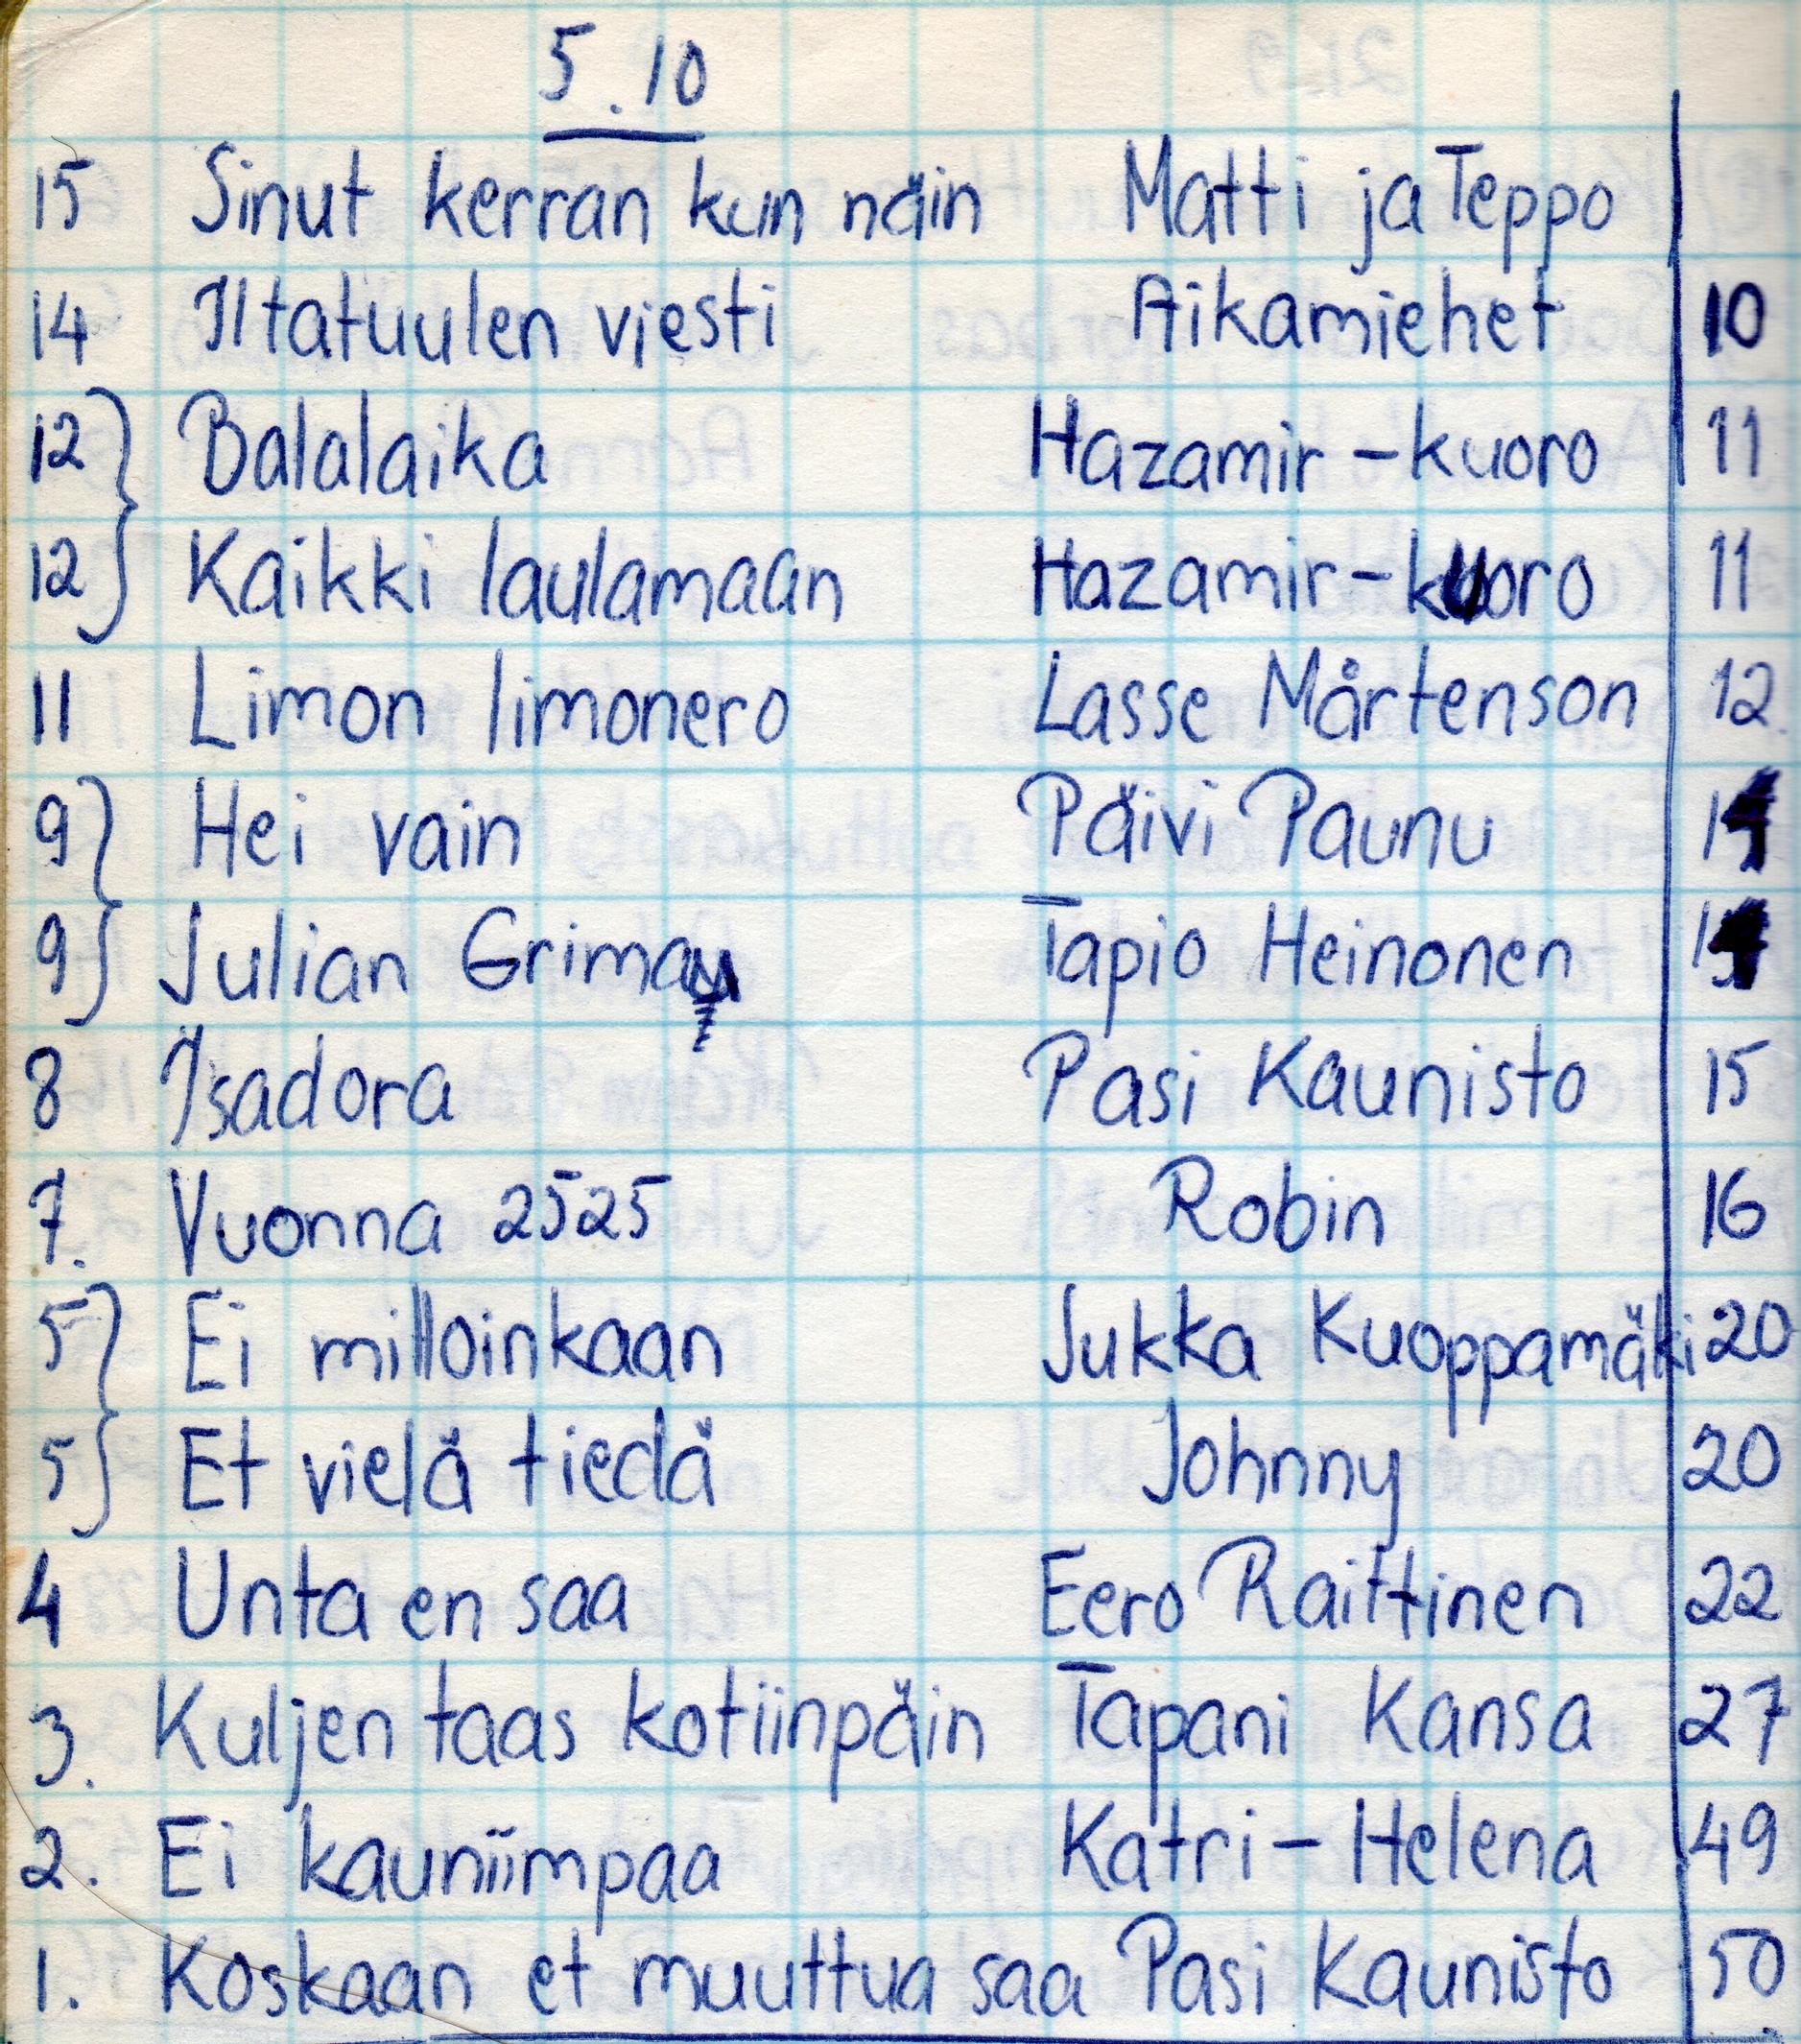 5.10
15 Sinut kerran kun näin Matti ja Teppo
14 Iltatuulen viesti Aikamiehet 10
12 Balalaika Hazamir-kuoro 11
12 Kaikki laulamaan Hazamir-kuoro 11
11 Limon limonero Lasse Mårtenson 12
9 Hei vain Päivi Paunu 14
9 Julian Grimay Tapio Heinonen 14
8 Isadora Pasi Kaunisto 15
7. Vuonna 2525 Robin 16
5 Ei milloinkaan Jukka Kuoppamäki 20
5 Et vielä tiedä Johnny 20
4 Unta en saa Eero Raittinen 22
3. Kuljen taas kotiinpäin Tapani Kansa 27
2. Ei kauniimpaa Katri-Helena 49
1. Koskaan et muuttua saa Pasi Kaunisto 50